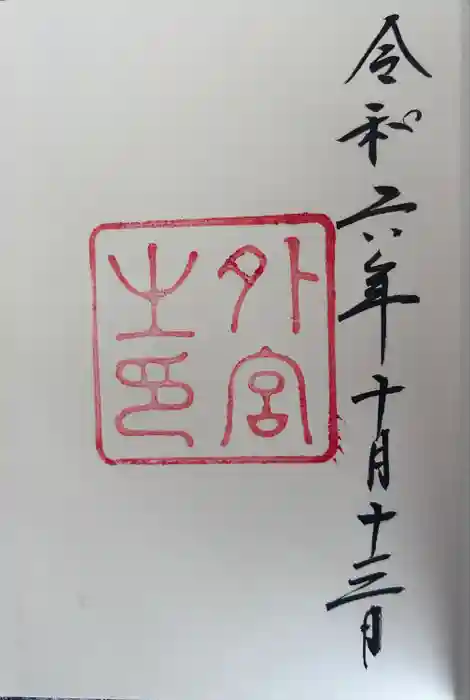 令和六年十月十三日
外宮
之印